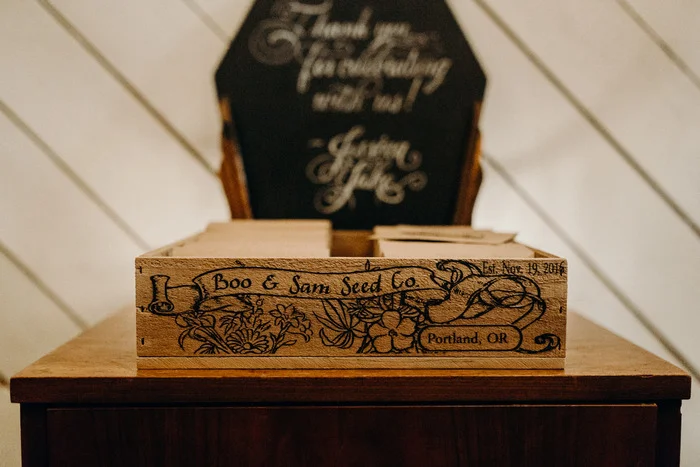 Thank you
for celebrating
with us!
Boo & Sam Seed Co.
Est. Nov. 19, 2016
Portland, OR